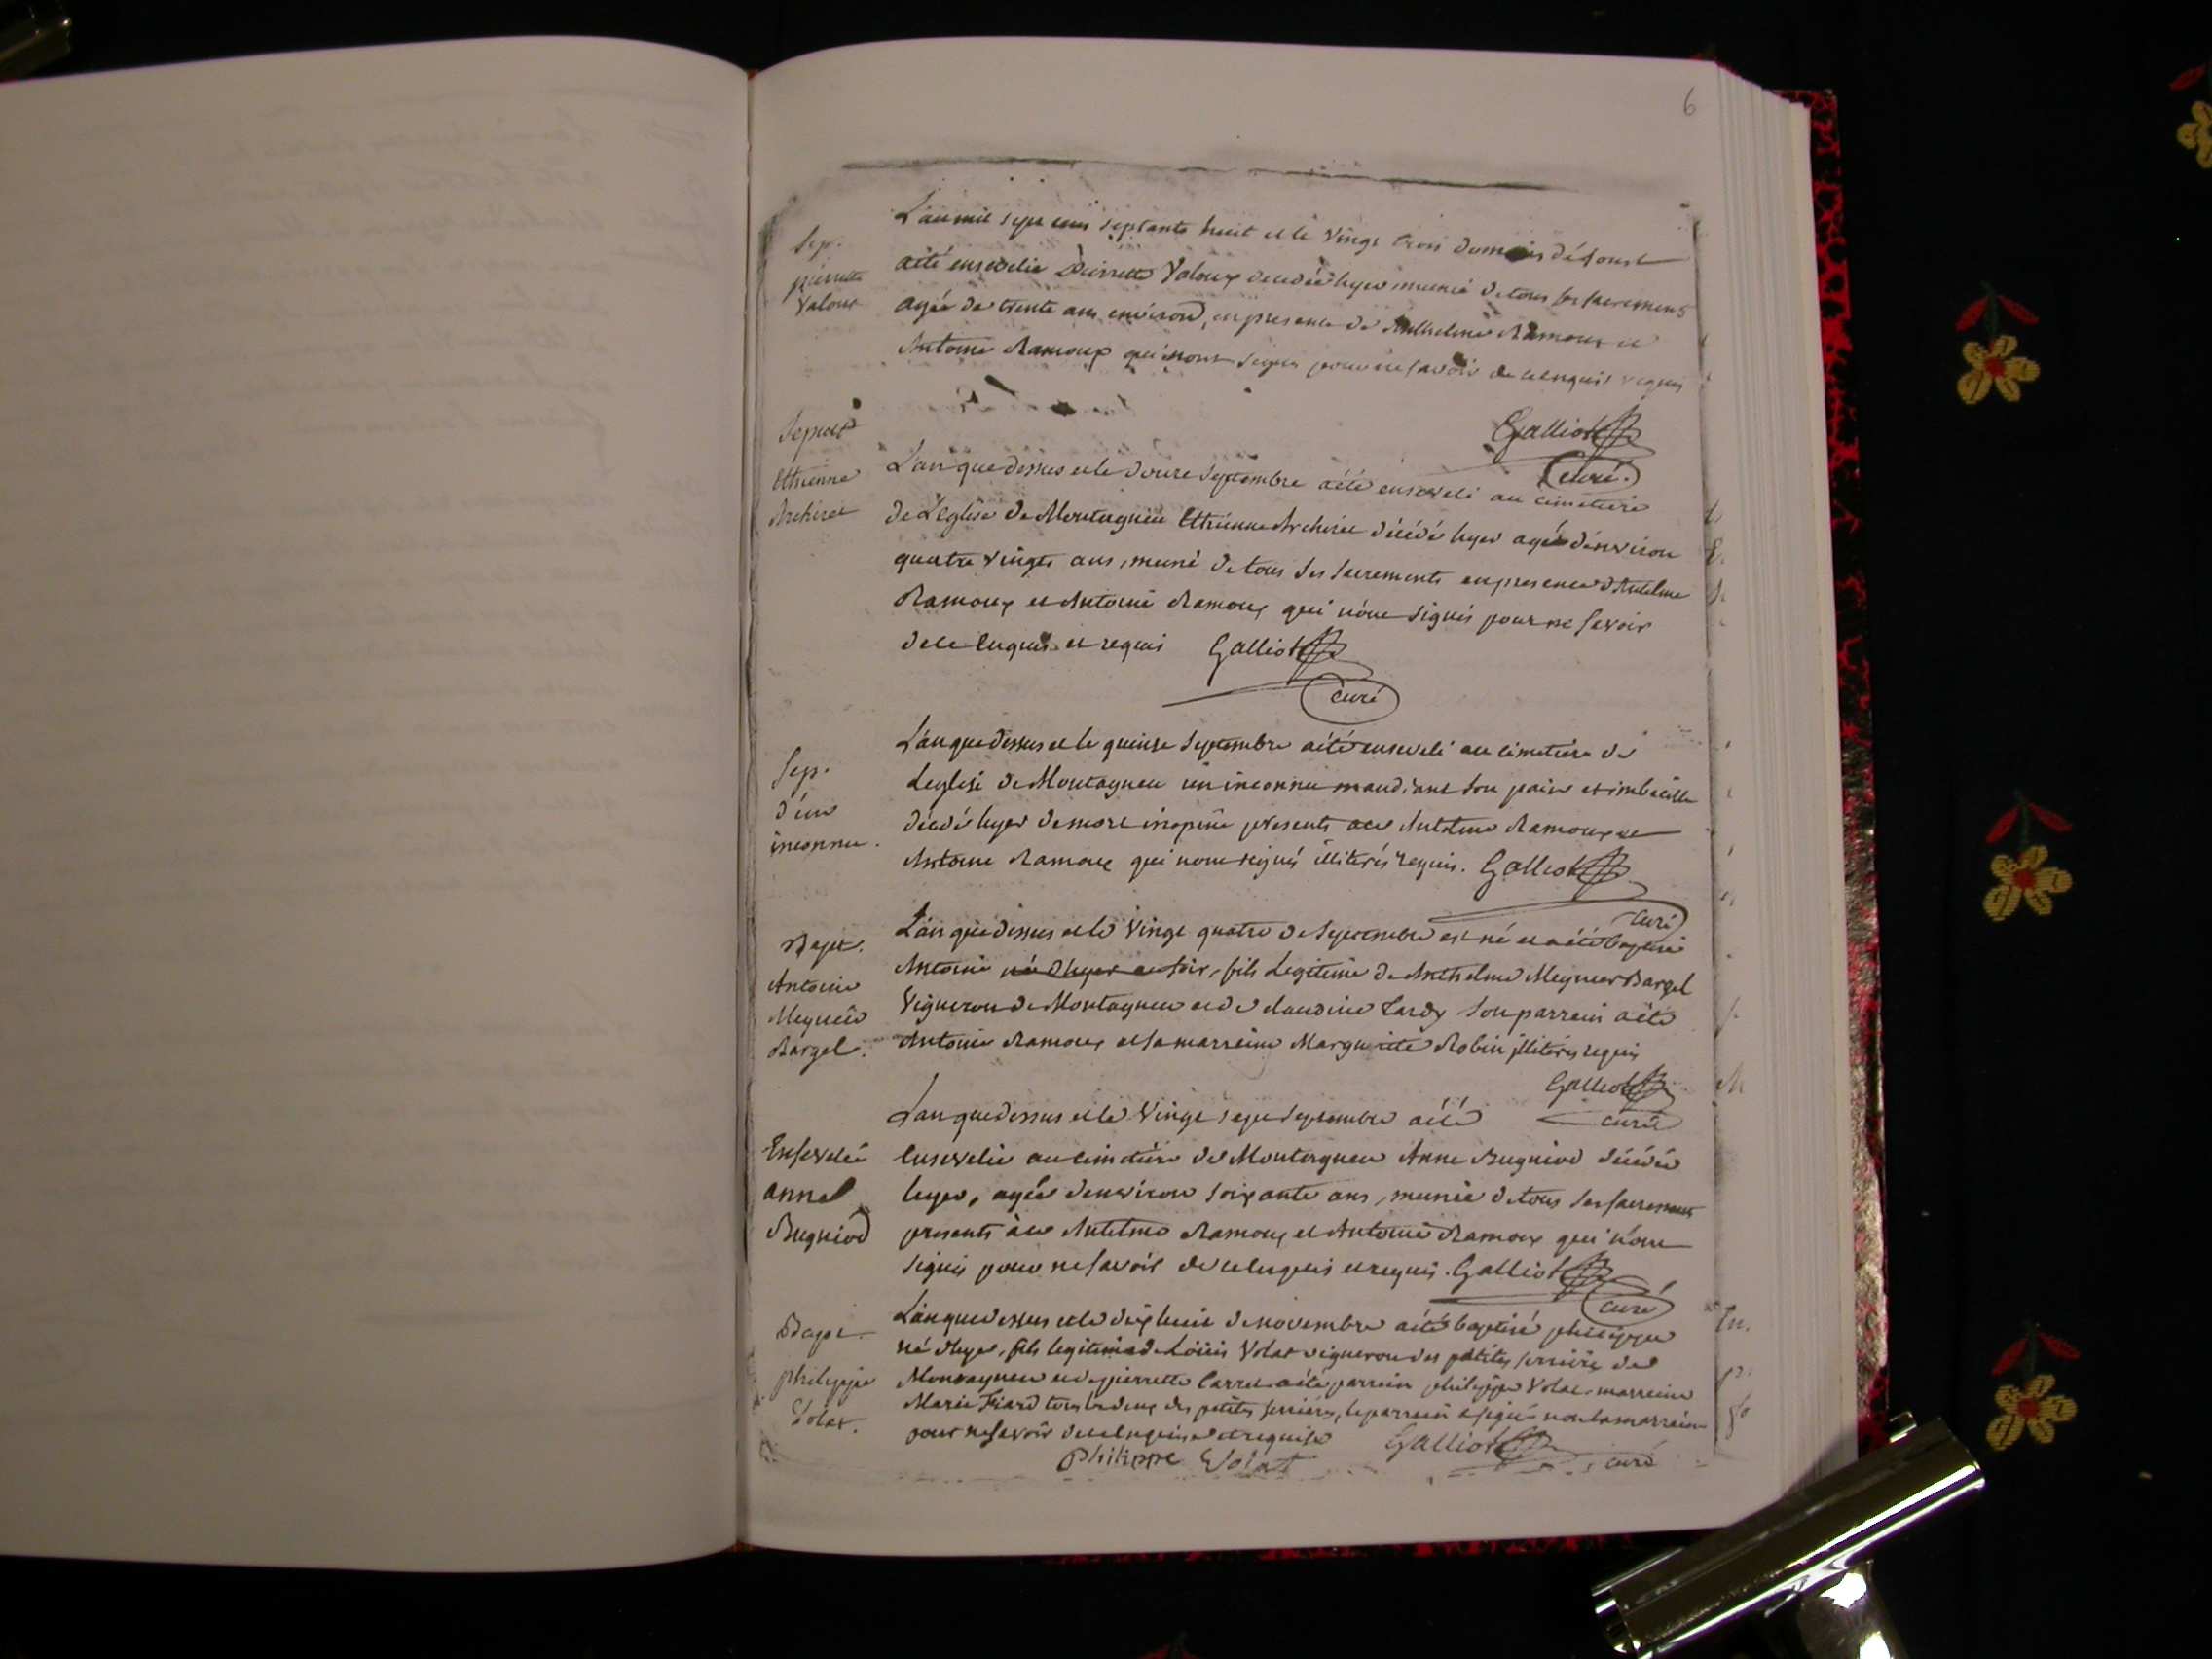 6
Sep.
pierrette
Valoux
L'an mil sept cens septante huit et le vingt trois du mois d'aoust
a été ensevelie Pierrette Valoux decedée hyer munie de tous ses sacremens
agée de trente ans environ, en presence de Anthelme Ramoux et
Antoine Ramoux qui n'ont signés pour ne savoir de ce enquis requis
Galliot
curé.
Sepult
Ethienne
Archiret
L'an que dessus et le douze Septembre a été enseveli au cimetiere
de L'eglise de Montagnieu Ethienne Archiret décédé hyer agé d'environ
quatre vingts ans, muni de tous ses sacrements en presence d'Antelme
Ramoux et Antoine Ramoux qui n'ont signés pour ne savoir
de ce enquis et requis Galliot
curé
Sep.
d'un
inconnu.
L'an que dessus et le quinze Septembre a été enseveli au cimetiere de
Leglise de Montagneu un inconnu mandiant son pain et imbecille
décédé hyer de mort inopinée presents a ce Antelme Ramoux et
Antoine Ramoux qui n'ont signés illiterés requis. Galliot
curé
Bapt.
Antoine
Meynier
Bargel.
L'an que dessus et le vingt quatre de Septembre est né et a été baptisé
Antoine né d'hyer au soir, fils Legitime de Anthelme Meynier Bargel
Vigneron de Montagneu et de claudine Tardy son parrein a été
Antoine Ramoux et sa marreine Marguerite Robin illiterés requis
Galliot
curé
Ensevelie
anne
Bugniod
L'an que dessus et le Vingt sept Septembre a été
Ensevelie au cimetiere de Montagneu Anne Bugniod décédée
hyer, agée d'environ soixante ans, munie de tous ses sacremens
presents à ce Antelme Ramoux et Antoine Ramoux qui n'ont
signés pour ne savoir de ce enquis et requis. Galliot
curé
Bapt.
philippe
Volat.
L'an que dessus et le dix huit de novembre a été baptisé philippe
né d'hyer, fils legitime de Loüis Volat vigneron des petites serriere de
Montagneu et de pierrette Carrel a été parrein philippe Volat marreine
Marie Fiard tous les deux des petites serrieres, le parrein a signé non la marreine
pour ne savoir de ce enquise et requise Galliot
curé
Philippe Volat